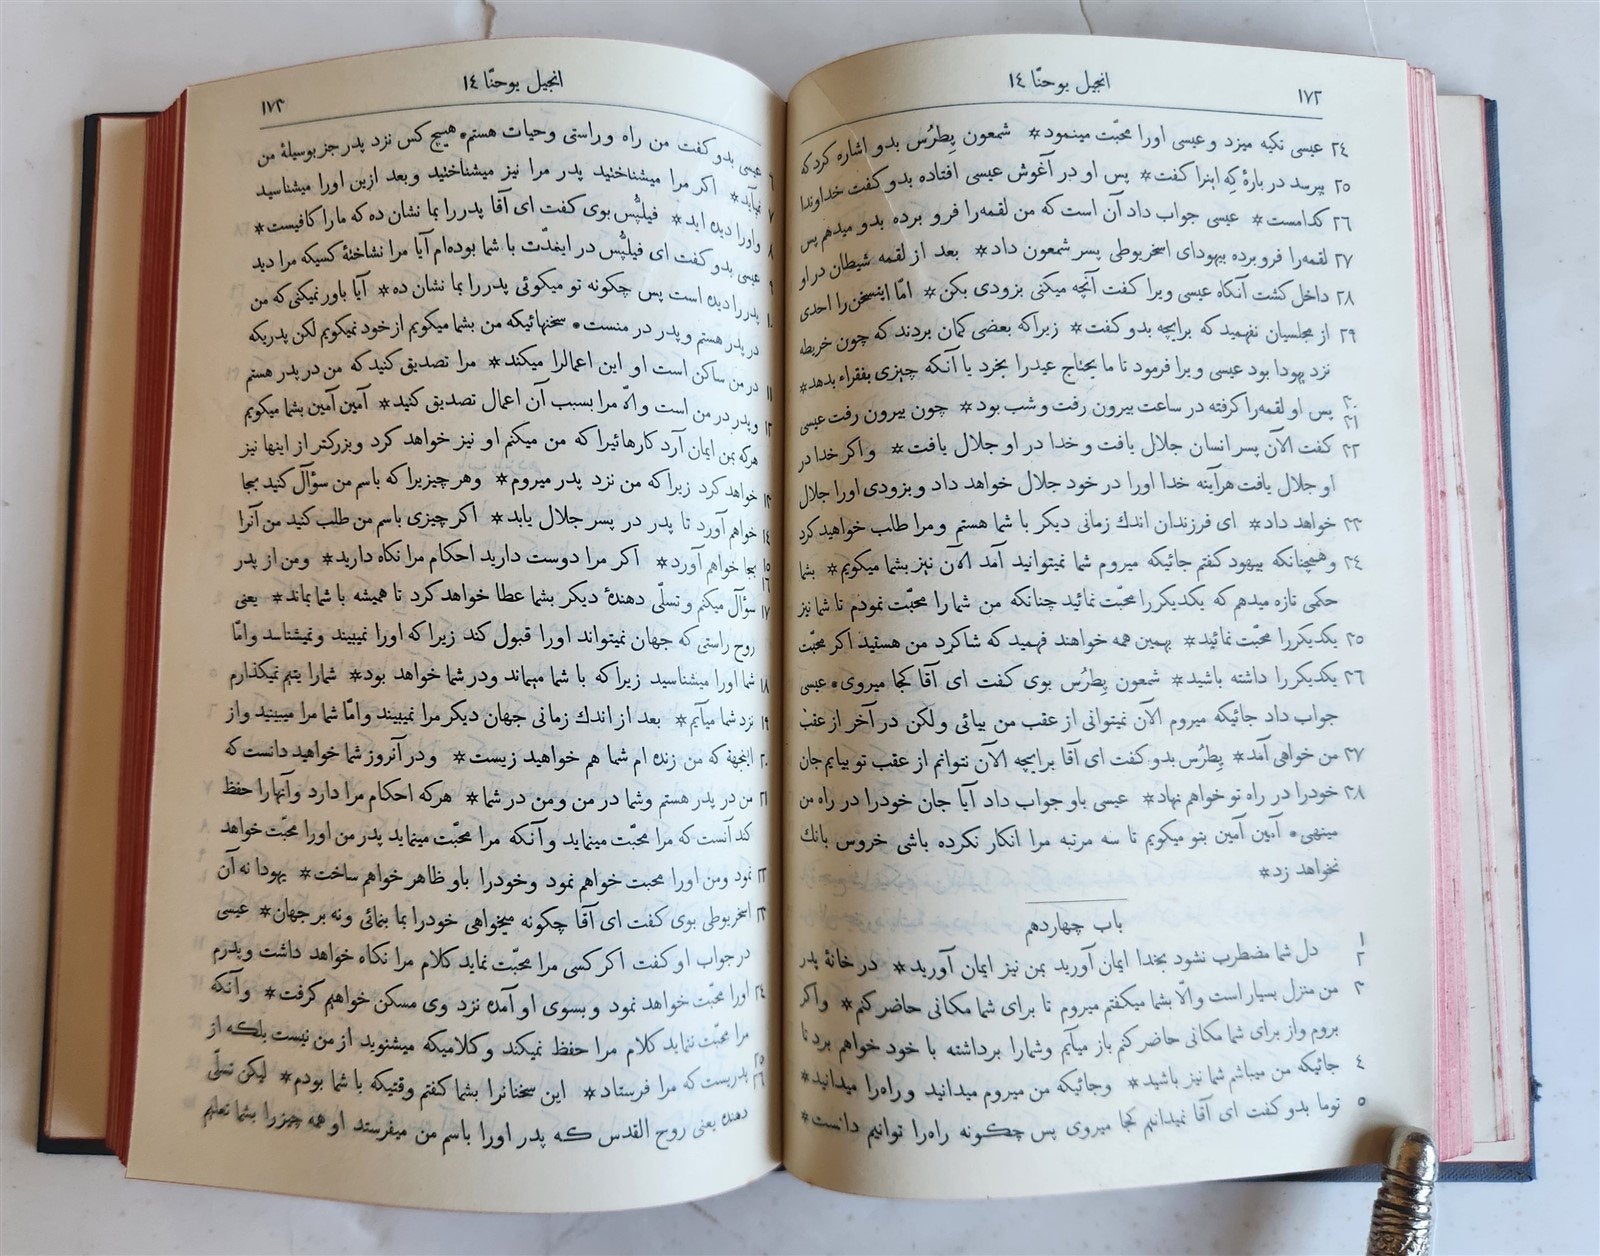 انجیل یوحنّا ١٤
١٧٢
٢٤ عیسی تکیه میزد و عیسی اورا محبّت مینمود٭ شمعون پِطرُس بدو اشاره کرد که
٢٥ بپرسد در بارهٔ که اینرا کفت٭ پس او در آغوش عیسی افتاده بدو کفت خداوندا
٢٦ کدامست٭ عیسی جواب داد آن است که من لقمه‌را فرو برده بدو میدهم پس
٢٧ لقمه‌را فرو برده بیهودای اسخریوطی پسر شمعون داد٭ بعد از لقمه شیطان در او
٢٨ داخل کشت آنکاه عیسی ویرا کفت آنچه میکنی بزودی بکن٭ امّا اینسخن را احدی
٢٩ از مجلسیان نفهمید که برایچه بدو کفت٭ زیراکه بعضی کمان بردند که چون خریطه
نزد یهودا بود عیسی ویرا فرمود تا ما یحتاج عیدرا بخرد یا آنکه چیزی بفقراء بدهد٭
٣٠ ٣١ پس او لقمه‌را کرفته در ساعت بیرون رفت و شب بود٭ چون بیرون رفت عیسی
٣٢ کفت الآن پسر انسان جلال یافت و خدا در او جلال یافت٭ واکر خدا در
او جلال یافت هرآینه خدا اورا در خود جلال خواهد داد و بزودی اورا جلال
٣٣ خواهد داد٭ ای فرزندان اندك زمانی دیکر با شما هستم ومرا طلب خواهید کرد
٣٤ وهمچنانکه بیهود کفتم جائیکه میروم شما نمیتوانید آمد الآن نیز بشما میکویم٭ بشما
حکمی تازه میدهم که یکدیکررا محبّت نمائید چنانکه من شمارا محبّت نمودم تا شما نیز
٣٥ یکدیکررا محبّت نمائید٭ بهمین همه خواهند فهمید که شاکرد من هستید اکر محبّت
٣٦ یکدیکررا داشته باشید٭ شمعون پِطرُس بوی کفت ای آقا کجا میروی٭ عیسی
جواب داد جائیکه میروم الآن نمیتوانی از عقب من بیائی ولکن در آخر از عقب
٣٧ من خواهی آمد٭ پِطرُس بدو کفت ای آقا برایچه الآن نتوانم از عقب تو بیایم جان
٣٨ خودرا در راه تو خواهم نهاد٭ عیسی باو جواب داد آیا جان خودرا در راه من
مینهی٭ آمین آمین بتو میکویم تا سه مرتبه مرا انکار نکرده باشی خروس بانك
نخواهد زد٭
باب چهاردهم
١ ٢ دل شما مضطرب نشود بخدا ایمان آورید بمن نیز ایمان آورید٭ در خانهٔ پدر
٣ من منزل بسیار است والّا بشما میکفتم میروم تا برای شما مکانی حاضر کنم٭ واکر
بروم واز برای شما مکانی حاضر کنم باز میآیم وشمارا برداشته با خود خواهم برد تا
٤ جائیکه من میباشم شما نیز باشید٭ وجائیکه من میروم میدانید وراه‌را میدانید٭
٥ توما بدو کفت ای آقا نمیدانیم کجا میروی پس چکونه راه‌را توانیم دانست٭
انجیل یوحنّا ١٤
١٧٣
عیسی بدو کفت من راه و راستی وحیات هستم٭ هیچ کس نزد پدر جز بوسیلهٔ من
نمیآید٭ اکر مرا میشناختید پدر مرا نیز میشناختید و بعد ازین اورا میشناسید
واورا دیده اید٭ فیلپُّس بوی کفت ای آقا پدررا بما نشان ده که مارا کافیست٭
عیسی بدو کفت ای فیلپُّس در اینمدّت با شما بوده‌ام آیا مرا نشاختهٔ کسیکه مرا دید
پدررا دیده است پس چکونه تو میکوئی پدررا بما نشان ده٭ آیا باور نمیکنی که من
در پدر هستم و پدر در منست٭ سخنهائیکه من بشما میکویم از خود نمیکویم لکن پدریکه
در من ساکن است او این اعمالرا میکند٭ مرا تصدیق کنید که من در پدر هستم
وپدر در من است والّا مرا بسبب آن اعمال تصدیق کنید٭ آمین آمین بشما میکویم
هرکه بمن ایمان آرد کارهائیرا که من میکنم او نیز خواهد کرد وبزرکتر از اینها نیز
خواهد کرد زیراکه من نزد پدر میروم٭ وهر چیزیرا که باسم من سؤآل کنید بجا
خواهم آورد تا پدر در پسر جلال یابد٭ اکر چیزی باسم من طلب کنید من آنرا
بجا خواهم آورد٭ اکر مرا دوست دارید احکام مرا نکاه دارید٭ ومن از پدر
سؤآل میکنم و تسلّی دهندهٔ دیکر بشما عطا خواهد کرد تا همیشه با شما بماند٭ یعنی
روح راستی که جهان نمیتواند اورا قبول کند زیراکه اورا نمیبیند ونمیشناسد وامّا
شما اورا میشناسید زیراکه با شما میماند ودر شما خواهد بود٭ شمارا یتیم نمیکذارم
نزد شما میآیم٭ بعد از اندك زمانی جهان دیکر مرا نمیبیند وامّا شما مرا میبینید واز
اینجهة که من زنده ام شما هم خواهید زیست٭ ودر آنروز شما خواهید دانست که
من در پدر هستم وشما در من ومن در شما٭ هرکه احکام مرا دارد وآنهارا حفظ
کند آنست که مرا محبّت مینماید و آنکه مرا محبّت مینماید پدر من اورا محبّت خواهد
نمود ومن اورا محبت خواهم نمود وخودرا باو ظاهر خواهم ساخت٭ یهودا نه آن
اسخریوطی بوی کفت ای آقا چکونه میخواهی خودرا بما بنمائی ونه بر جهان٭ عیسی
در جواب او کفت اکر کسی مرا محبّت نماید کلام مرا نکاه خواهد داشت وپدرم
اورا محبّت خواهد نمود و بسوی او آمده نزد وی مسکن خواهیم کرفت٭ وآنکه
مرا محبّت ننماید کلام مرا حفظ نمیکند وکلامیکه میشنوید از من نیست بلکه از
پدریست که مرا فرستاد٭ این سخنانرا بشما کفتم وقتیکه با شما بودم٭ لیکن تسلّی
دهنده یعنی روح القدس که پدر اورا باسم من میفرستد او همه چیزرا بشما تعلیم